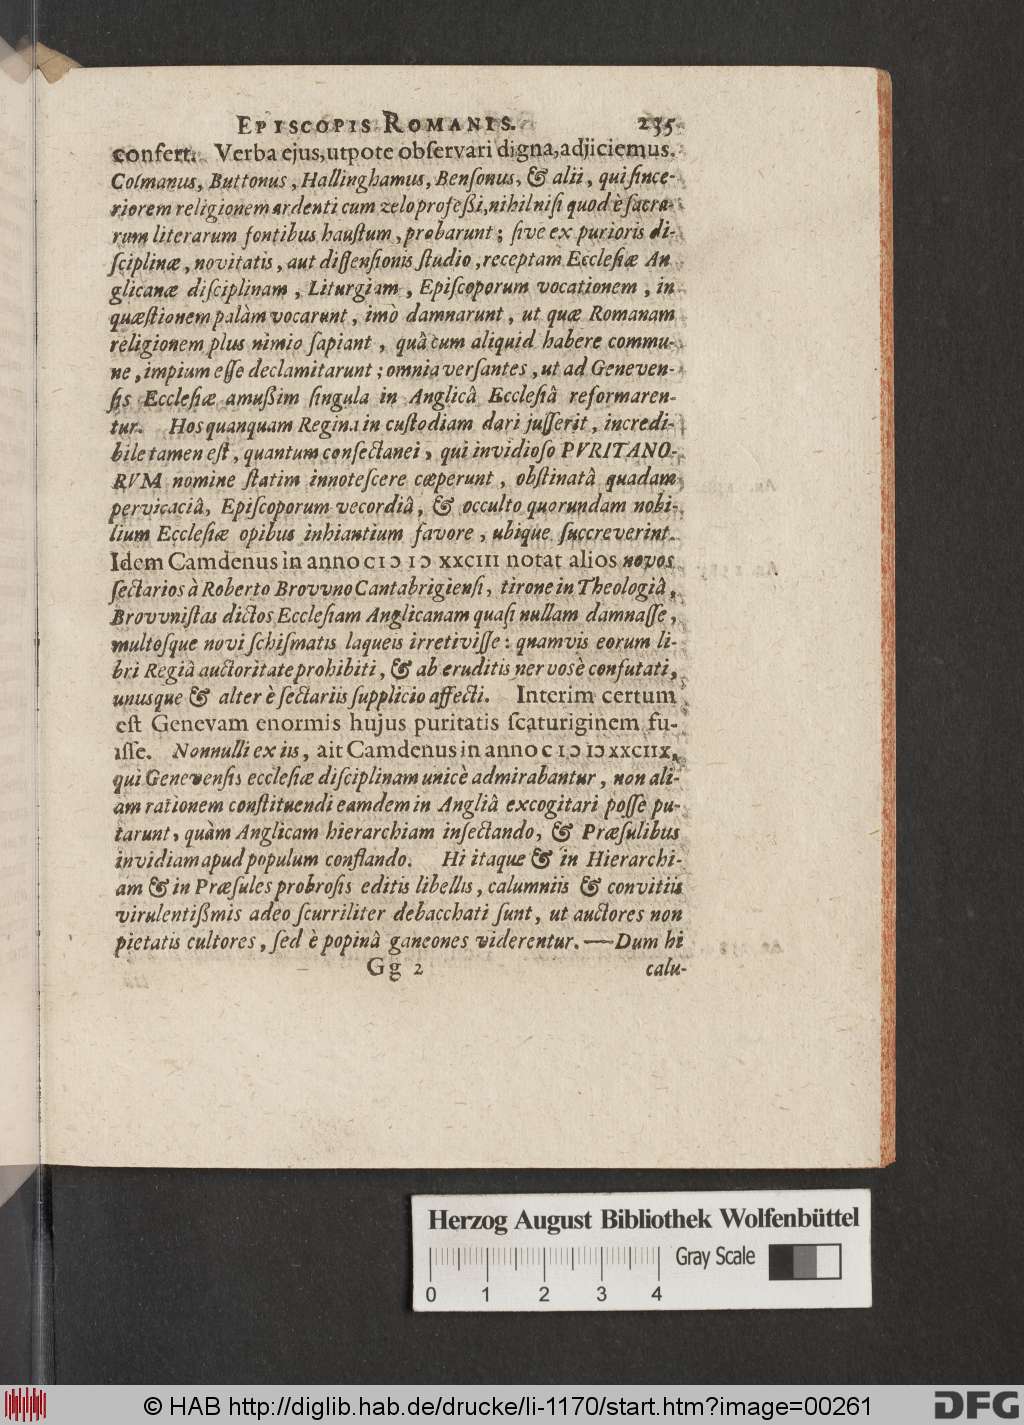 EPISCOPIS ROMANIS. 235
confert. Verba ejus, utpote obſervari digna, adjiciemus.
Colmanus, Buttonus, Hallinghamus, Benſonus, & alii, qui ſince-
riorem religionem ardenti cum zelo profeßi, nihil niſi quod è ſacra-
rum literarum fontibus hauſtum, probarunt; ſive ex purioris di-
ſciplinæ, novitatis, aut diſſenſionis ſtudio, receptam Eccleſiæ An
glicanæ diſciplinam, Liturgiam, Epiſcoporum vocationem, in
quæſtionem palàm vocarunt, imò damnarunt, ut quæ Romanam
religionem plus nimio ſapiant, quâ cum aliquid habere commu-
ne, impium eſſe declamitarunt; omnia verſantes, ut ad Geneven-
ſis Eccleſiæ amußim ſingula in Anglicâ Eccleſiâ reformaren-
tur. Hos quanquam Regina in cuſtodiam dari juſſerit, incredi-
bile tamen eſt, quantum conſectanei, qui invidioſo PVRITANO-
RVM nomine ſtatim innoteſcere cœperunt, obſtinatâ quadam
pervicaciâ, Epiſcoporum vecordiâ, & occulto quorundam nobi-
lium Eccleſiæ opibus inhiantium favore, ubique ſuccreverint.
Idem Camdenus in anno CIↃ IↃ XXCIII notat alios novos
ſectarios à Roberto Brovvno Cantabrigienſi, tirone in Theologiâ,
Brovvniſtas dictos Eccleſiam Anglicanam quaſi nullam damnaſſe,
multoſque novi ſchiſmatis laqueis irretiviſſe: quamvis eorum li-
bri Regiâ auctoritate prohibiti, & ab eruditis nervosè confutati,
unusque & alter è ſectariis ſupplicio affecti. Interim certum
eſt Genevam enormis hujus puritatis ſcaturiginem fu-
iſſe. Nonnulli ex iis, ait Camdenus in anno CIↃ IↃ XXCIIX,
qui Genevenſis eccleſiæ diſciplinam unicè admirabantur, non ali-
am rationem conſtituendi eamdem in Angliâ excogitari poſſe pu-
tarunt, quàm Anglicam hierarchiam inſectando, & Præſulibus
invidiam apud populum conflando. Hi itaque & in Hierarchi-
am & in Præſules probroſis editis libellis, calumniis & convitiis
virulentißmis adeo ſcurriliter debacchati ſunt, ut auctores non
pietatis cultores, ſed è popinâ ganeones viderentur. — Dum hi
Gg 2 calu-
Herzog August Bibliothek Wolfenbüttel
Gray Scale
0 1 2 3 4
© HAB http://diglib.hab.de/drucke/li-1170/start.htm?image=00261
DFG